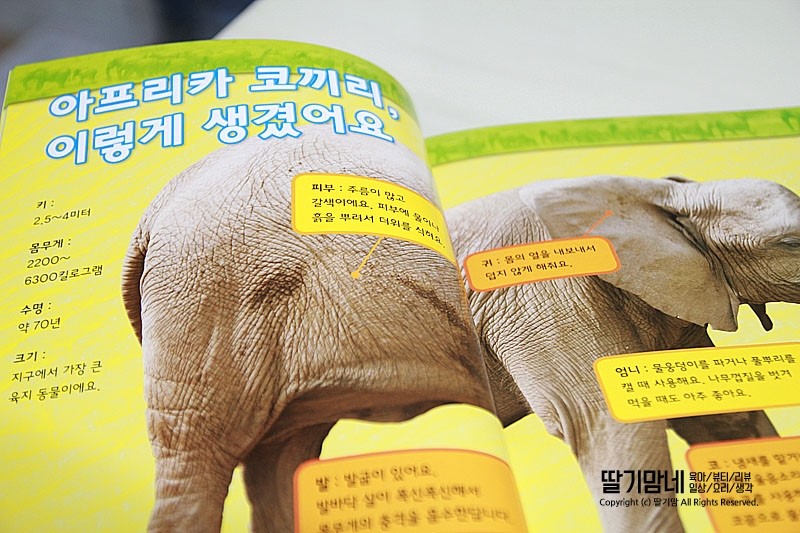 아프리카 코끼리,
이렇게 생겼어요
키 :
2.5~4미터
몸무게 :
2200~
6300킬로그램
수명 :
약 70년
크기 :
지구에서 가장 큰
육지 동물이에요.
피부 : 주름이 많고
갈색이에요. 피부에 물이나
흙을 뿌려서 더위를 식혀요.
귀 : 몸의 열을 내보내서
덥지 않게 해줘요.
엄니 : 물웅덩이를 파거나 풀뿌리를
캘 때 사용해요. 나무껍질을 벗겨
먹을 때도 아주 좋아요.
발 : 발굽이 있어요.
발바닥 살이 푹신푹신해서
충격을 흡수한답니다.
코 : 냄새를
딸기맘네 육아/뷰티/리뷰
일상/요리/생각
Copyright (c) 딸기맘 All Rights Reserved.